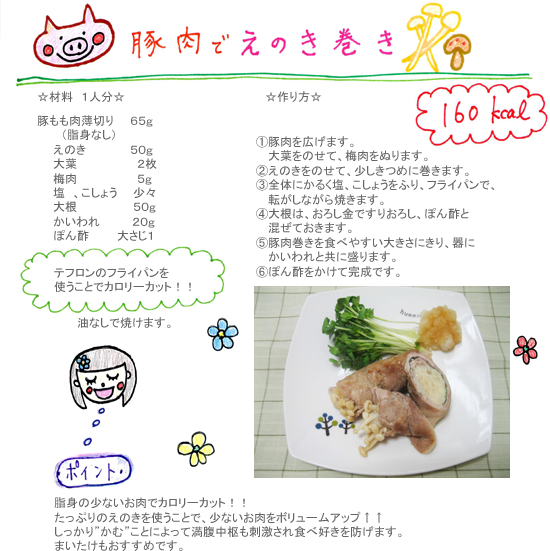 豚肉でえのき巻き
160 kcal
☆材料 1人分☆
豚もも肉薄切り 65g
（脂身なし）
えのき 50g
大葉 2枚
梅肉 5g
塩 、こしょう 少々
大根 50g
かいわれ 20g
ぽん酢 大さじ1
テフロンのフライパンを
使うことでカロリーカット！！
油なしで焼けます。
☆作り方☆
①豚肉を広げます。
大葉をのせて、梅肉をぬります。
②えのきをのせて、少しきつめに巻きます。
③全体にかるく塩、こしょうをふり、フライパンで、
転がしながら焼きます。
④大根は、おろし金ですりおろし、ぽん酢と
混ぜておきます。
⑤豚肉巻きを食べやすい大きさにきり、器に
かいわれと共に盛ります。
⑥ぽん酢をかけて完成です。
ポイント。
脂身の少ないお肉でカロリーカット！！
たっぷりのえのきを使うことで、少ないお肉をボリュームアップ↑↑
しっかり”かむ”ことによって満腹中枢も刺激され食べ好きを防げます。
まいたけもおすすめです。